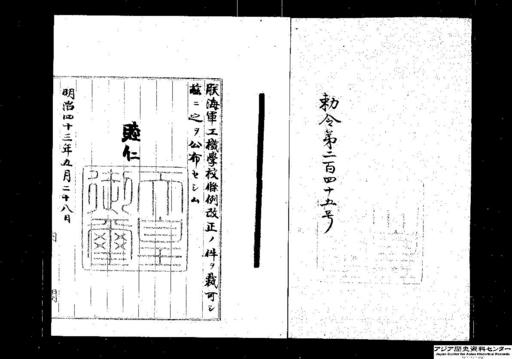 勅令第二百四十五号
朕海軍工機学校條例改正ノ件ヲ裁可シ
茲ニ之ヲ公布セシム
睦仁
天皇
御璽
明治四十三年五月二十八日
アジア歴史資料センター
Japan Center for Asian Historical Records